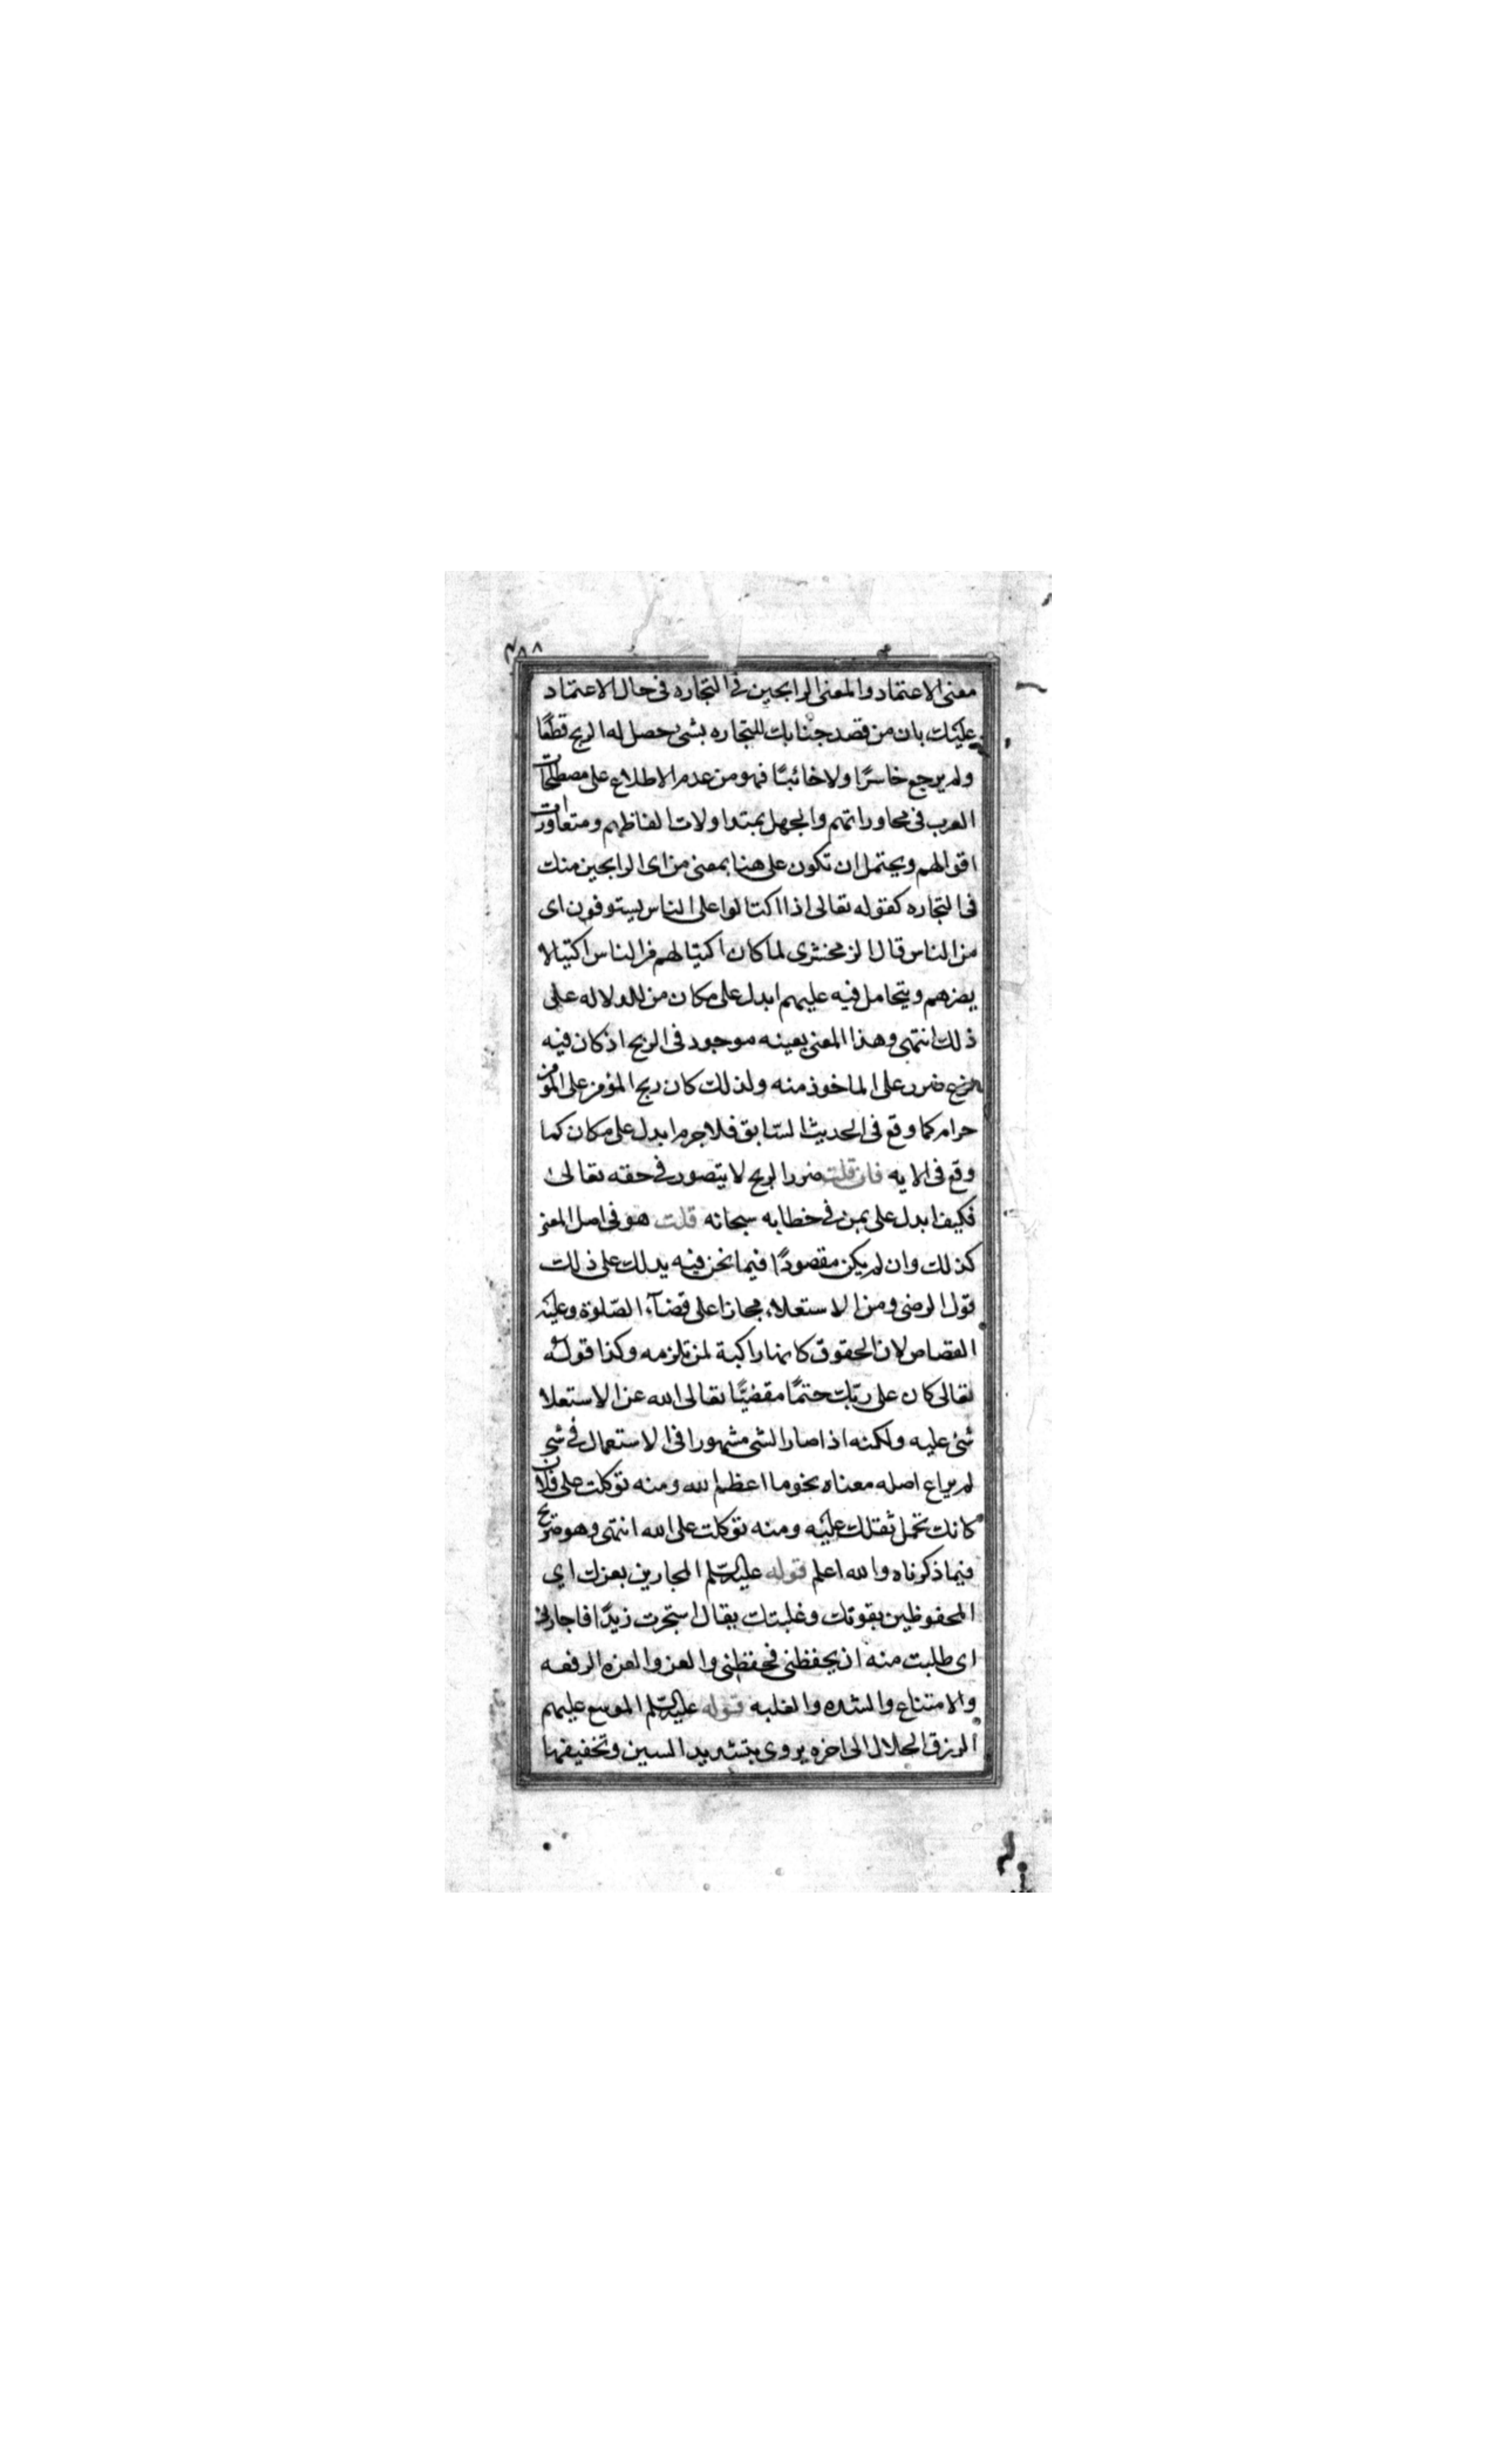 ٣٨٨
معنى الاعتماد والمعنى الرابحين في التجاره فى حال الاعتماد
عليك بان من قصد جنابك للتجاره بشئ حصل له الربح قطعًا
ولم يرجع خاسرًا ولا خائبًا فهو من عدم الاطلاع على مصطلحات
العرب فى محاوراتهم والجهل بمتداولات الفاظهم ومتعاورات
اقوالهم ويحتمل ان تكون على هنا بمعنى من اى الرابحين منك
فى التجاره كقوله تعالى اذا اكتالوا على الناس يستوفون اى
من الناس قال الزمخشرى لما كان اكتيالهم من الناس اكتيالا
يضرهم ويتحامل فيه عليهم ابدل على مكان من للدلاله على
ذلك انتهى وهذا المعنى بعينه موجود فى الربح اذ كان فيه
ضرر على الماخوذ منه ولذلك كان ربح المؤمن على المؤمن
حرام كما وقع فى الحديث السّابق فلا جرم ابدل على مكان كما
وقع فى الايه فان قلت ضرر الربح لا يتصور فى حقه تعالى
فكيف ابدل على بمن فى خطابه سبحانه قلت هو فى اصل المعنى
كذلك وان لم يكن مقصودًا فيما نحن فيه يدلك على ذلك
قول الرضى ومن الاستعلاء مجازا على قضآء الصّلوة وعليه
القصاص لان الحقوق كانها راكبة لمن تلزمه وكذا قوله
تعالى كان على ربّك حتمًا مقضيًا تعالى الله عن الاستعلا
شئ عليه ولكنه اذا صار الشى مشهورا فى الاستعمال فى شئ
لم يراع اصله معناه نحو ما اعظم الله ومنه توكلت على فلان
كانك تحمل ثقلك عليه ومنه توكلت على الله انتهى وهو صريح
فيما ذكرناه والله اعلم قوله عليه السّلم المجارين بعزك اي
المحفوظين بقوتك وغلبتك يقال استجرت زيدًا فاجارنى
اى طلبت منه ان يحفظنى فحفظنى والعز والعزه الرفعه
والامتناع والشده والغلبه قوله عليه السّلم الموسع عليهم
الرزق الحلال الى اخره يروى بتشديد السين وتخفيفها